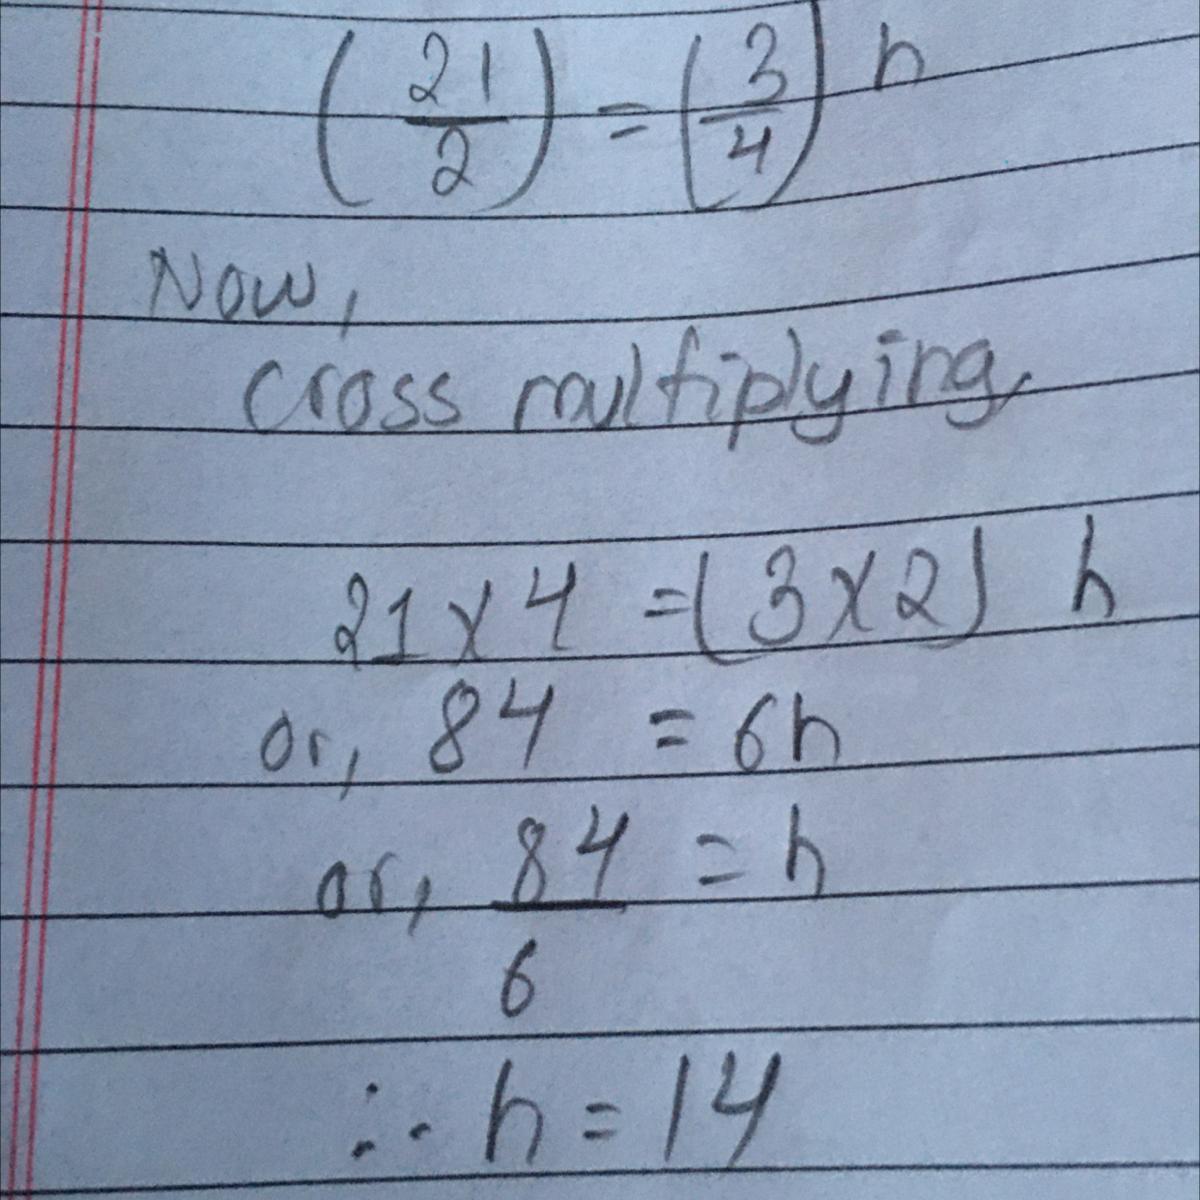 (21/2) = (3/4) h
Now,
cross multiplying,
21 x 4 = (3 x 2) h
or, 84 = 6h
or, 84/6 = h
∴ h = 14